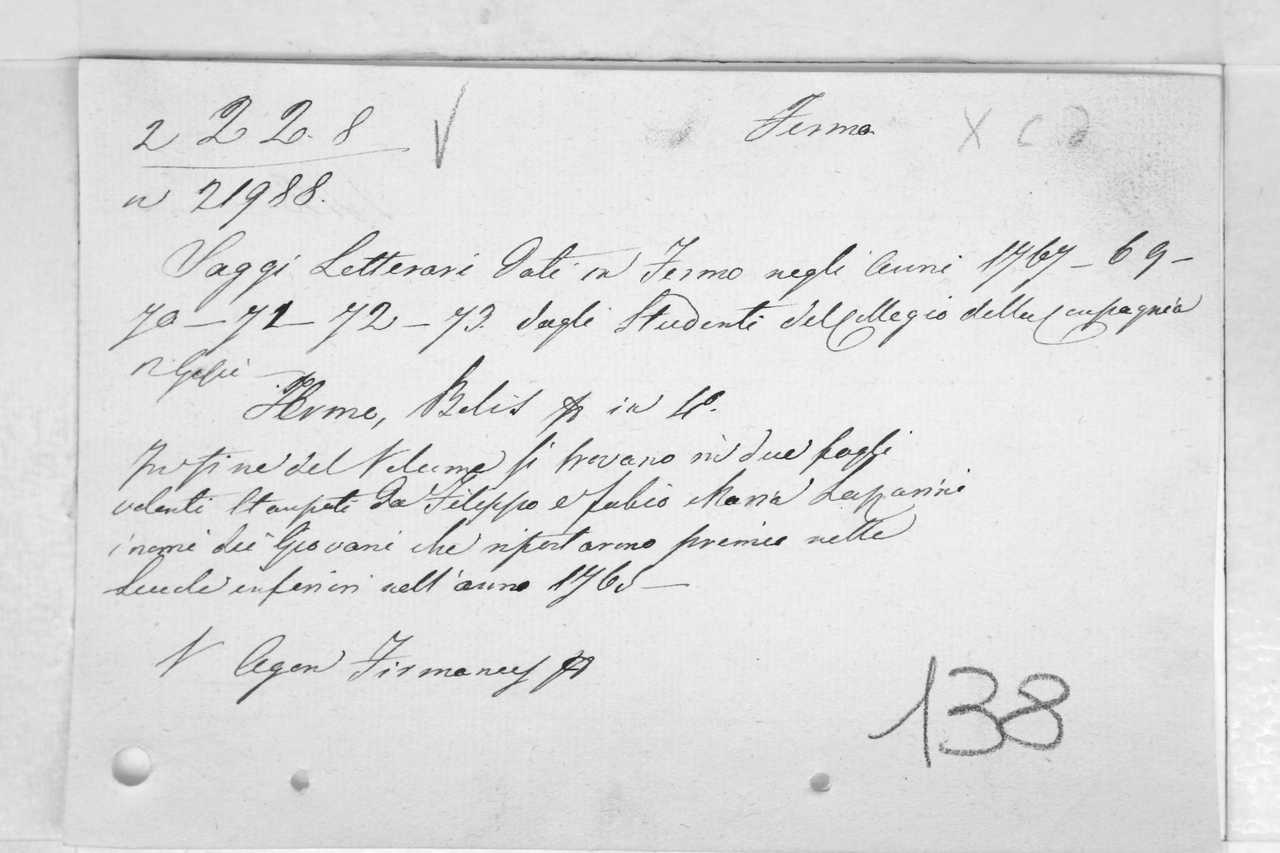 2 2 2. 8 V Fermo X C
n 21988.
Saggi Letterari Dati in Fermo negli Anni 1767 - 69 -
70 - 71 - 72 - 73. dagli Studenti del Collegio della Compagnia
Gesù
Fermo, Bolis in 4º.
In fine del Volume si trovano in due fogli
volanti Stampati Da Filippo e fabio Maria Lazzarini
i nomi dei Giovani che riportarono premio nelle
Scuole inferiori nell'anno
V Agon Firmanus
138